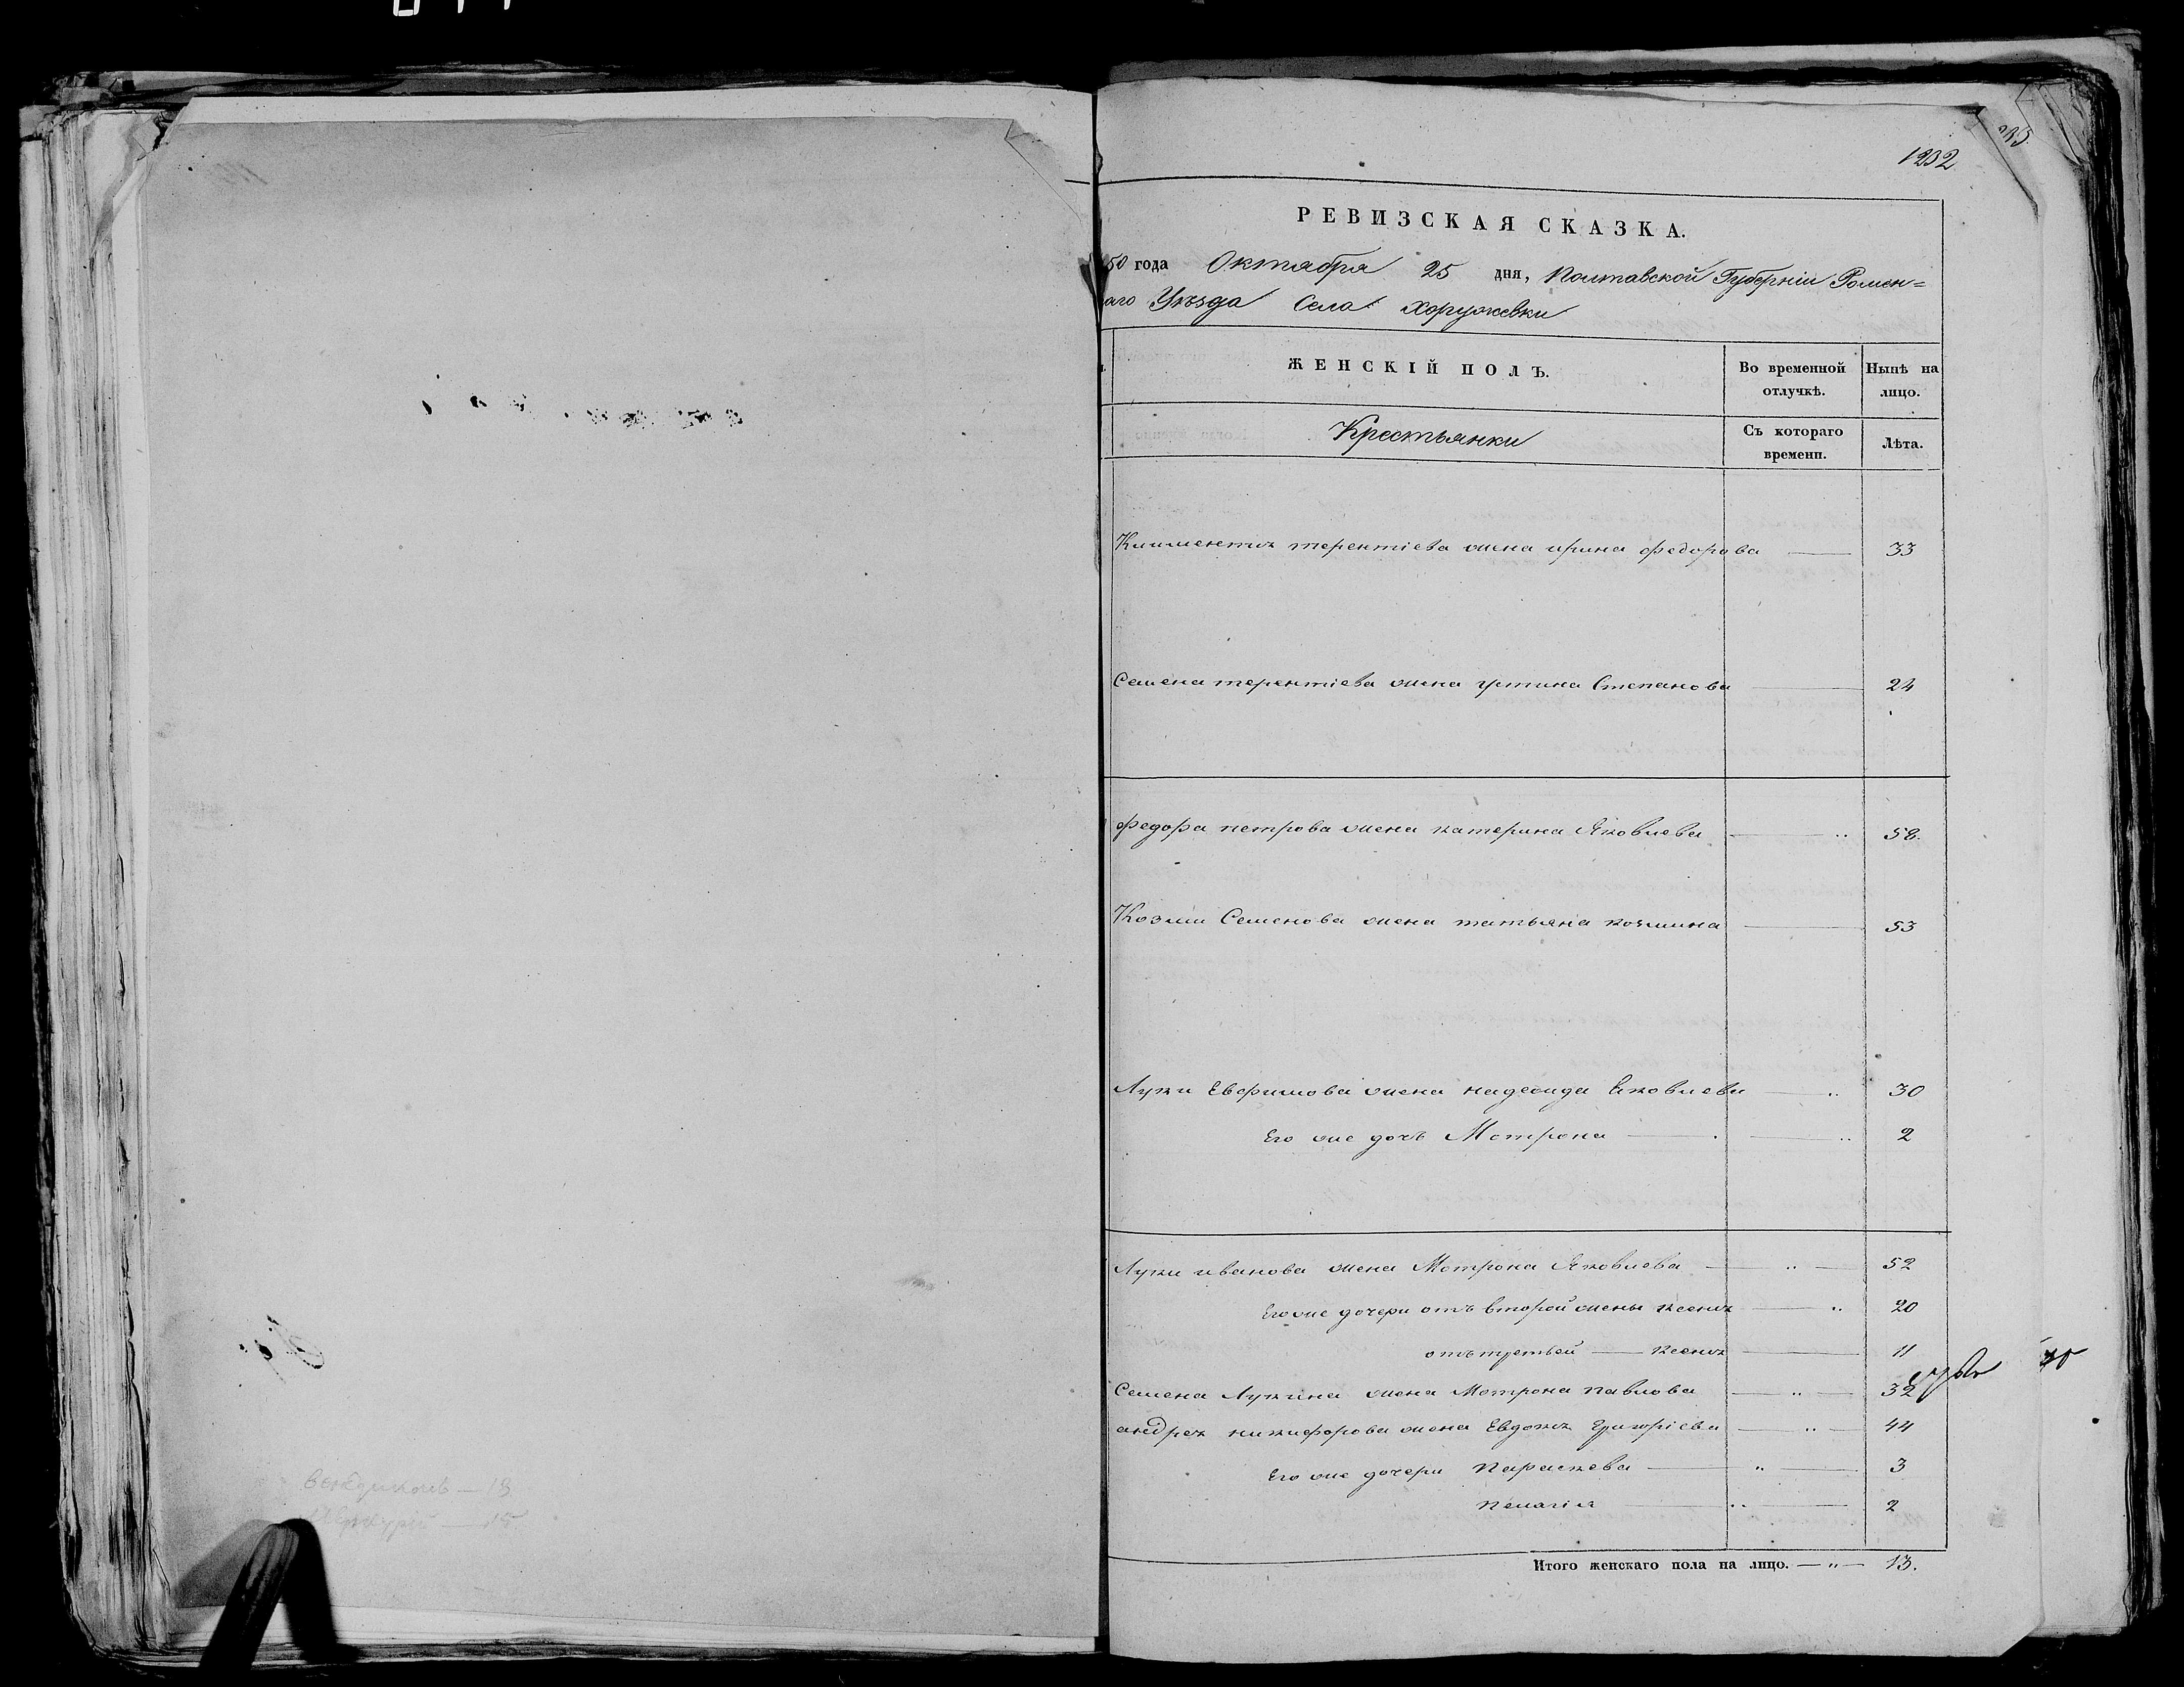 1232
РЕВИЗСКАЯ СКАЗКА.
50 года Октября 25 дня, Полтавской Губерніи Ромен=
аго Уѣзда Села Хоружевки
ЖЕНСКІЙ ПОЛЪ.
Во временной отлучкѣ.
Нынѣ на лицо.
Крестьянки
Съ котораго времени.
Лѣта.
Климентія терентіева жена ирина федорова — 33
Семена терентіева жена устина Степанова — 24
федора петрова жена катерина Яковлева — „ 58.
Козми Семенова жена татьяна козмина — 53
Луки Евфимова жена надежда Яковлева — „ 30
Его же дочь Мотрона — „ 2
Луки иванова жена Мотрона Яковлева — „ — 52
Его же дочери отъ второй жены ксенія — „ 20
отъ третьей — ксенія — 11
Семена Лукина жена Мотрона павлова — „ — 32
андрея никифорова жена Евдокія Григоріева — „ — 44
Его же дочери Параскева — „ — 3
пелагія — „ — 2
Итого женскаго пола на лицо. — „ — 13.